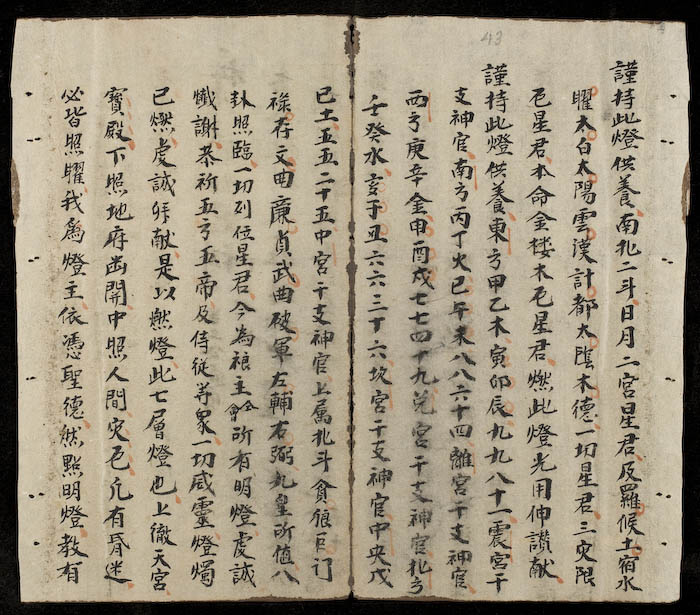 43
謹持此燈供養南北二斗日月二宮星君及羅候土宿水
曜太白太陽雲漢計都太陰木德一切星君三灾限
厄星君本命金楼木厄星君燃此燈光用伸讃献
謹持此燈供養東方甲乙木寅卯辰九九八十一震宮干
支神官南方丙丁火巳午未八八六十四離宮干支神官
西方庚辛金申酉戌七七四十九兌宮干支神官北方
壬癸水亥子丑六六三十六坎宮干支神官中央戊
己土五五二十五中宮干支神官上属北斗貪狼巨门
禄存文曲廉貞武曲破軍左輔右弼九皇所值八
卦照臨一切列位星君今為禳主合會所有明燈虔誠
懺謝恭祈五方五帝及侍従等衆一切咸靈燈燭
已燃虔誠拜献是以燃燈此七層燈也上徹天宮
寳殿下照地府幽開中照人間灾厄凢有昏迷
必皆照耀我為燈主依憑聖德然點明燈教有